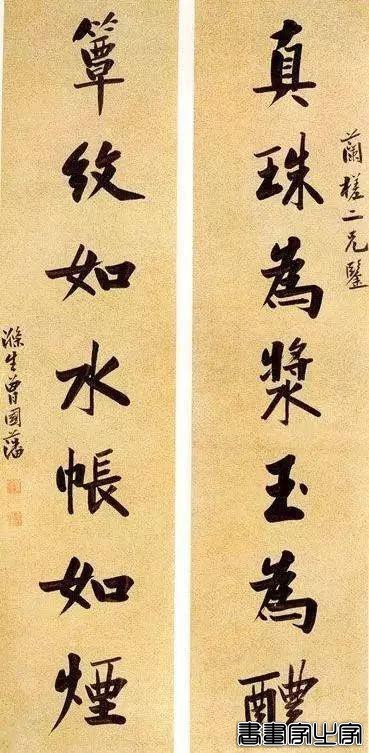 蘭槎二兄鑒
真珠為漿玉為醴
簟紋如水帳如煙
滌生曾國藩
書畫家之家